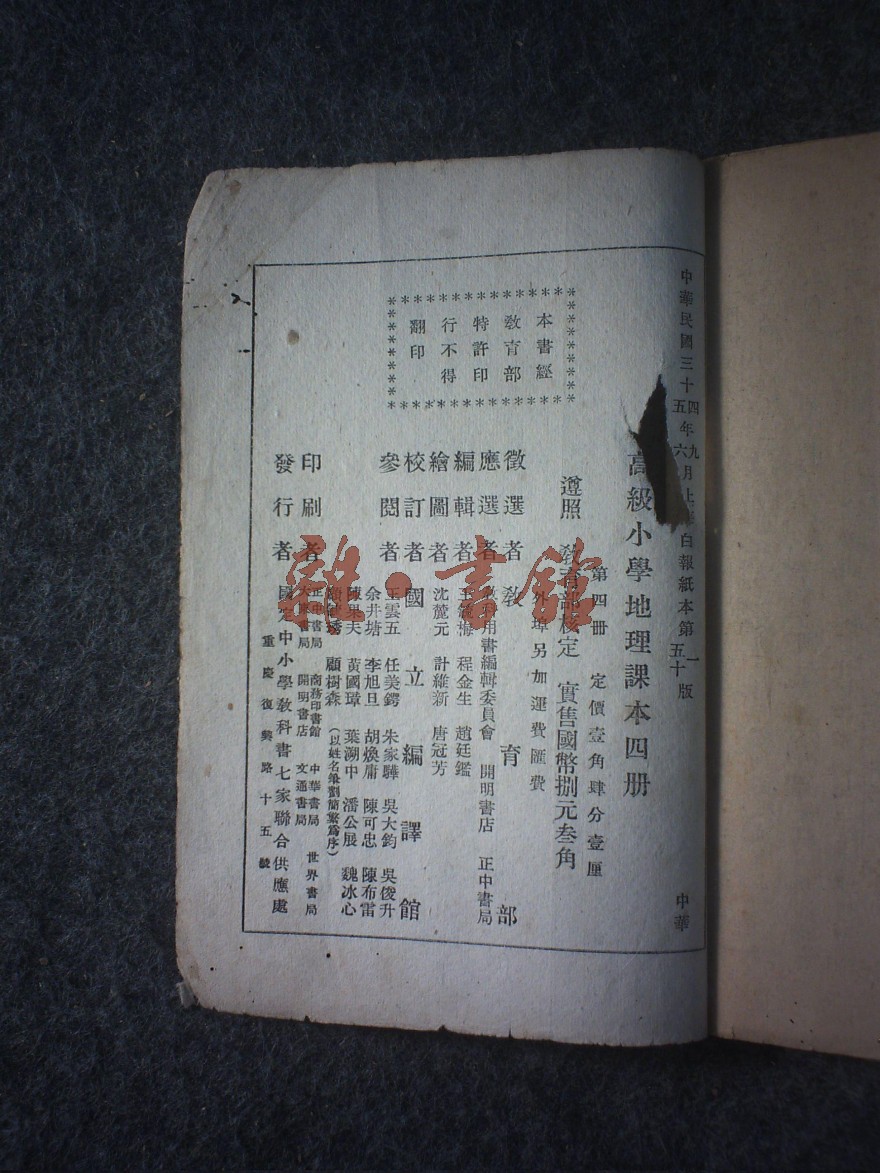 中華民國三十四五年九六月上白報紙本第一五十版
中華
高級小學地理課本四册
第四册 定價壹角肆分壹厘
遵照 教育部核定 實售國幣捌元叁角
外埠另加運費匯費
本書經
敎育部
特許印
行不得
翻印
徵選者 敎育部
應選者 用書編輯委員會 開明書店 正中書局
編輯者 程金生 趙廷鑑
繪圖者 沈麓元 計維新 唐冠芳
校訂者 國立編譯館
參閱者 王雲五 任美鍔 朱家驊 吳大鈞 吳俊升
余井塘 李旭旦 胡煥庸 陳可忠 陳布雷
陳果夫 黃國璋 葉溯中 潘公展 魏冰心
顧樹森 (以姓名筆劃簡繁爲序)
印刷者 正中書局 商務印書館 中華書局 世界書局
大東書局 開明書店 文通書局
發行者 國定中小學敎科書七家聯合供應處
重慶復興路十五號
雜·書館